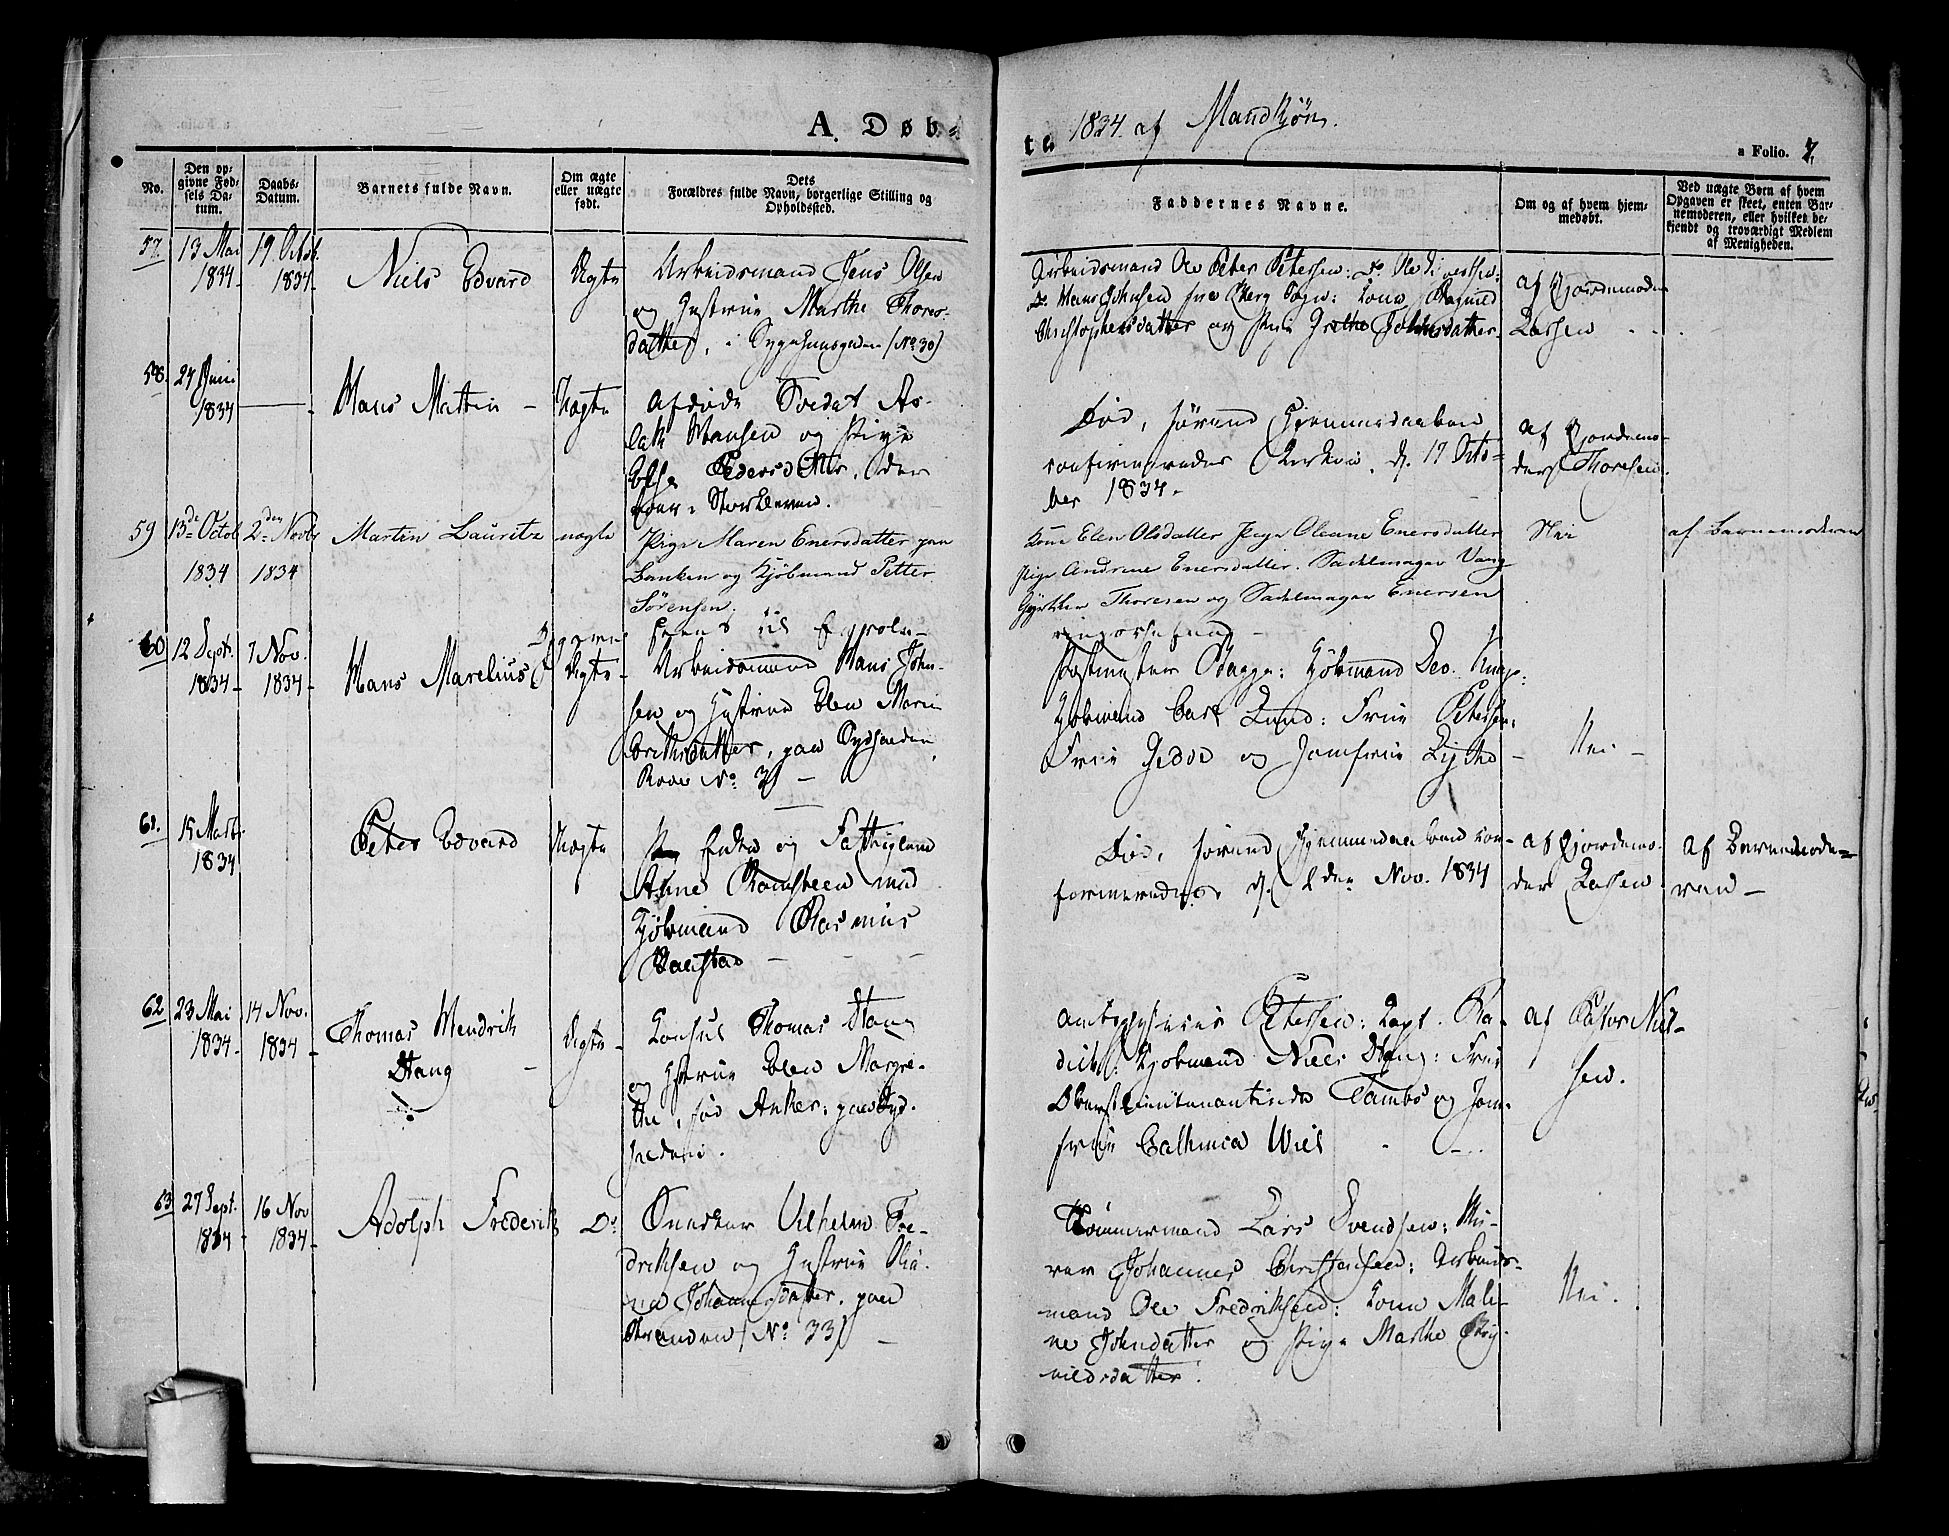 A. Døb=
te 1834. af Mandkjøn.
a Folio. 7.
No.
Den op-
givne Fød-
sels Da-
tum.
Daabs-
Datum.
Barnets fulde Navn.
Om ægte
eller uægte
født.
Dets
Forældres fulde Navn, borgerlige Stilling og
Opholdssted.
Faddernes Navne.
Om og af hvem hjem-
medøbt.
Ved uægte Børn af hvem
Opgaven er skeet, enten Bar-
nemoderen, eller hvilket be-
kjendt og troværdigt Medlem
af Menigheden.
57.
13 Mai
1834
19. Octob.
1834
Niels Edvard
Ægte
Arbeidsmand Jens Olsen
og Hustrue Marthe Thores-
datter, i Sygehuusgaden (No 30)
Arbeidsmand Ole Peter Petersen:
Do Hans Johnsen fra Berg Sogn: Kone Ragnild
Christophersdatter og Pige Grethe Johnsdatter
af Gjordemoder
Lassen
58.
24 Juni
1834
Hans Martin
Uægte
Afdøde Soldat As-
lak Hansen og Pige
Else Pedersdatter, der
boer i Stork
Død, førend Hjemmedaaben
confirmeredes i Kirken, d. 17 Octo-
ber 1834.
af Gjordemo-
der Thoresen.
59
13de Octob
1834
2den Novbr
1834
Martin Lauritz
uægte
Pige Maren Enersdatter paa
Banken og Kjøbmand Petter
Sørensen.
Kone Elen Olsdatter Pige Oleane Enersdatter
Pige Andrine Enersdatter. Sadelmager Vang
Gjørtler Thoresen og Sadelmager Enersen
Nei
af Barnemoderen
60
12 Sept.
1834
7 Nov.
1834
Hans Marelius
Ægte
Arbeidsmand Hans John-
sen og Hustrue Elen Marie
Erichsdatter, paa Sydsiden
Rode No. 3)
Postmester Bagge: Kjøbmand Deo. Knap:
Kjøbmand Carl Lund: Frue Petersen:
Frue Gedde og Jomfrue Lythe
Nei
61.
15 Marts
1834
Peter Edvard
Uægte
Enke og Fattiglem
Anne Ramsteen med
Kjøbmand Rasmus
Død, førend Hjemmedaaben con-
formeredes, d. 2den Nov. 1834
af Gjordemo-
der Lassen
af Barnemode=
ren
62
23 Mai
1834
14 Nov.
1834
Thomas Hendrik
Stang
Ægte
Konsul Thomas Stang
og Hustrue Elen Margre-
the, fød Anker: paa Syd-
siden.
Amtsphysicus Petersen: Capt. Ra-
dich: Kjøbmand Niels Stang: Frue
Oberstlieutenantinde Tambs og Jom-
frue Cathinca Wiel
af Pastor Niel-
sen.
63
27 Sept.
1834
16 Nov
1834
Adolph Frederik
Do
Snedker Vilhelm Fre-
driksen og Hustrue Oli-
ne Johannesdatter, paa
Stranden (No. 33)
Tømmermand Lars Svendsen: Mu-
rer Johannes Christensen: Arbeids-
mand Ole Fredriksen: Kone Mali-
ne Johnsdatter og Pige Marthe Eng-
nildsdatter.
Nei.